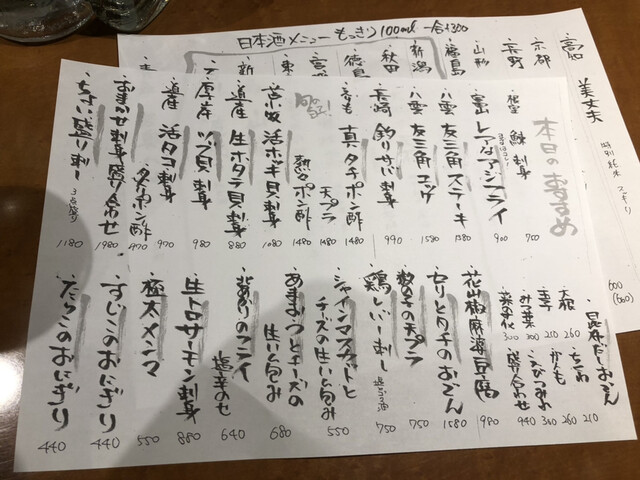 日本酒メニュー もっきり100ml 一合+300
高知
京都
長野
山形
福島
新潟
秋田
徳島
宮城
美丈夫
特別純米
600
(660)
本日のおすすめ
鯨刺身 750
・富山 レアなアジフライ 900
・八雲 友三角ステーキ 1380
・八雲 友三角ユッケ 1580
・長崎 釣りサバ刺身 990
真タチポン酢 1480
天プラ 1480
熱々ポン酢 1480
・苫小牧 活ホッキ貝刺身 1080
・道産 生ホタテ貝刺身 880
・厚岸 ツブ貝刺身 980
・道産 活タコ刺身 970
タコポン酢 970
・おまかせ刺身盛り合わせ 1980
・ちょい盛り刺し 3点盛り 1180
・昆布だしおでん
大根 260
ちくわ 260
かんも
玉子 210
つみれ
三つ葉 300
盛り合わせ 940
菜の花 300
・花山椒麻婆豆腐 980
・セリとタチのおでん 1580
・数の子の天プラ 750
・鶏レバー刺し 塩ごま油 750
・シャインマスカットとチーズの生ハム包み 550
・あまおうとチーズの生ハム包み 680
・塩辛のせ 640
・生トロサーモン刺身 880
・極太メンマ 550
・すじこのおにぎり 440
・たらこのおにぎり 440